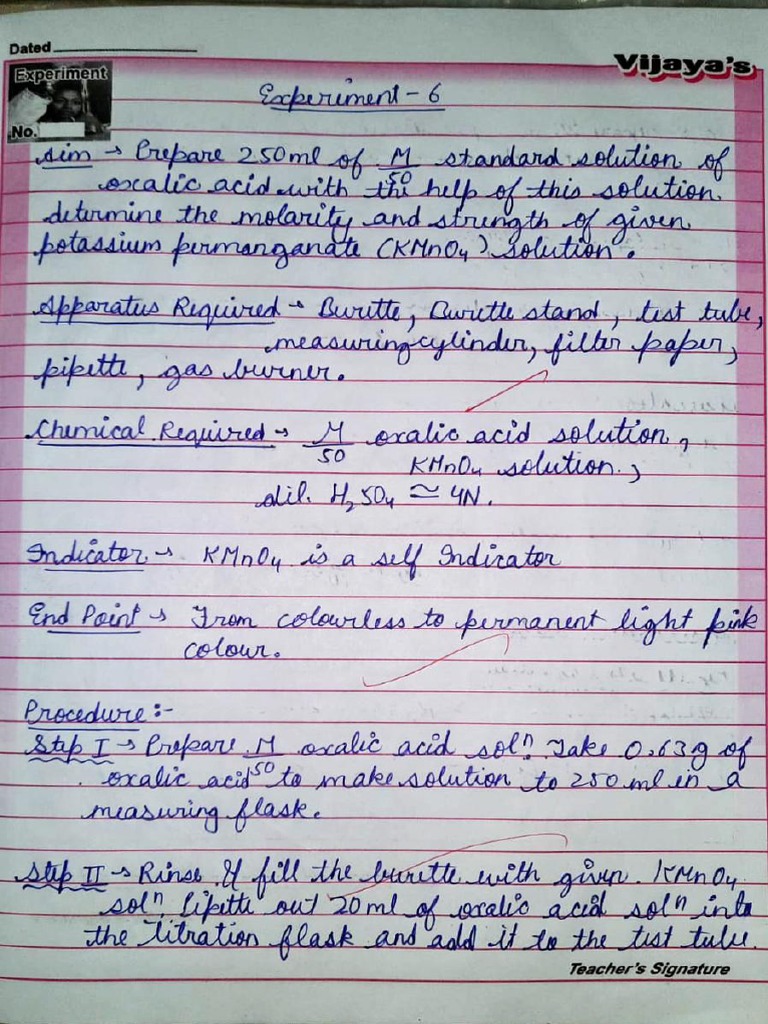 Dated
Vijaya's
Experiment
No.
Experiment - 6
Aim → Prepare 250ml of M/50 standard solution of
oxalic acid. with the help of this solution
determine the molarity and strength of given
potassium permanganate (KMnO₄) solution.
Apparatus Required → Burette, Burette stand, test tube,
measuring cylinder, filter paper,
pipette, gas burner.
Chemical Required → M/50 oxalic acid solution,
KMnO₄ solution,
dil. H₂SO₄ ≃ 4N.
Indicator → KMnO₄ is a self Indicator
End Point → From colourless to permanent light pink
colour.
Procedure :-
Step I → Prepare M/50 oxalic acid solⁿ. Take 0.63g of
oxalic acid to make solution to 250 ml in a
measuring flask.
Step II → Rinse & fill the burette with given KMnO₄
solⁿ. Pipette out 20ml of oxalic acid solⁿ into
the titration flask and add it to the test tube.
Teacher's Signature